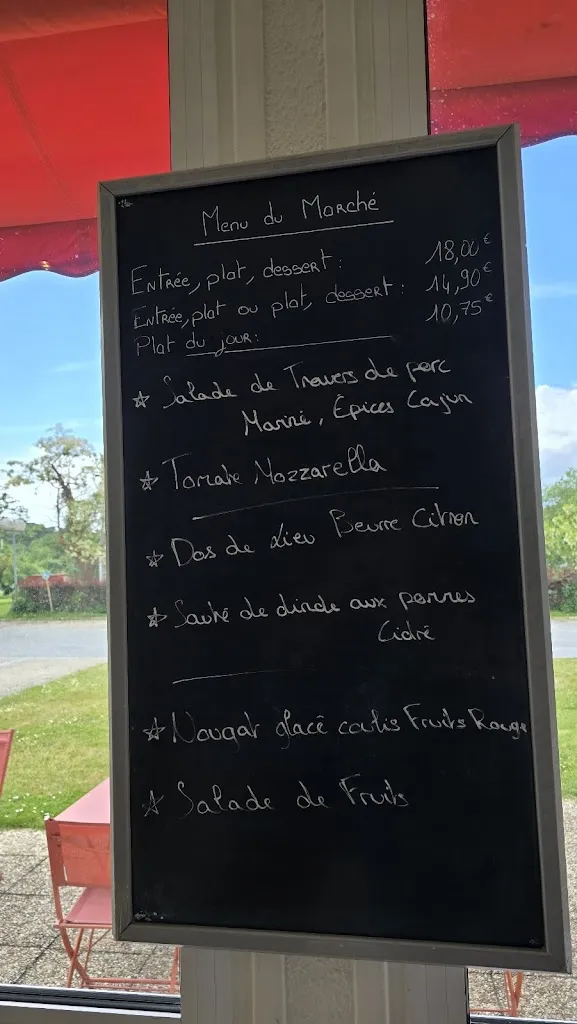 Menu du Marché
Entrée, plat, dessert : 18,00€
Entrée, plat ou plat, dessert : 14,90€
Plat du jour: 10,75€
☆ Salade de Travers de porc
Mariné, Épices Cajun
☆ Tomate Mozzarella
☆ Dos de Lieu Beurre Citron
☆ Sauté de dinde aux pommes
Cidré
☆ Nougat glacé coulis Fruits Rouge
☆ Salade de Fruits